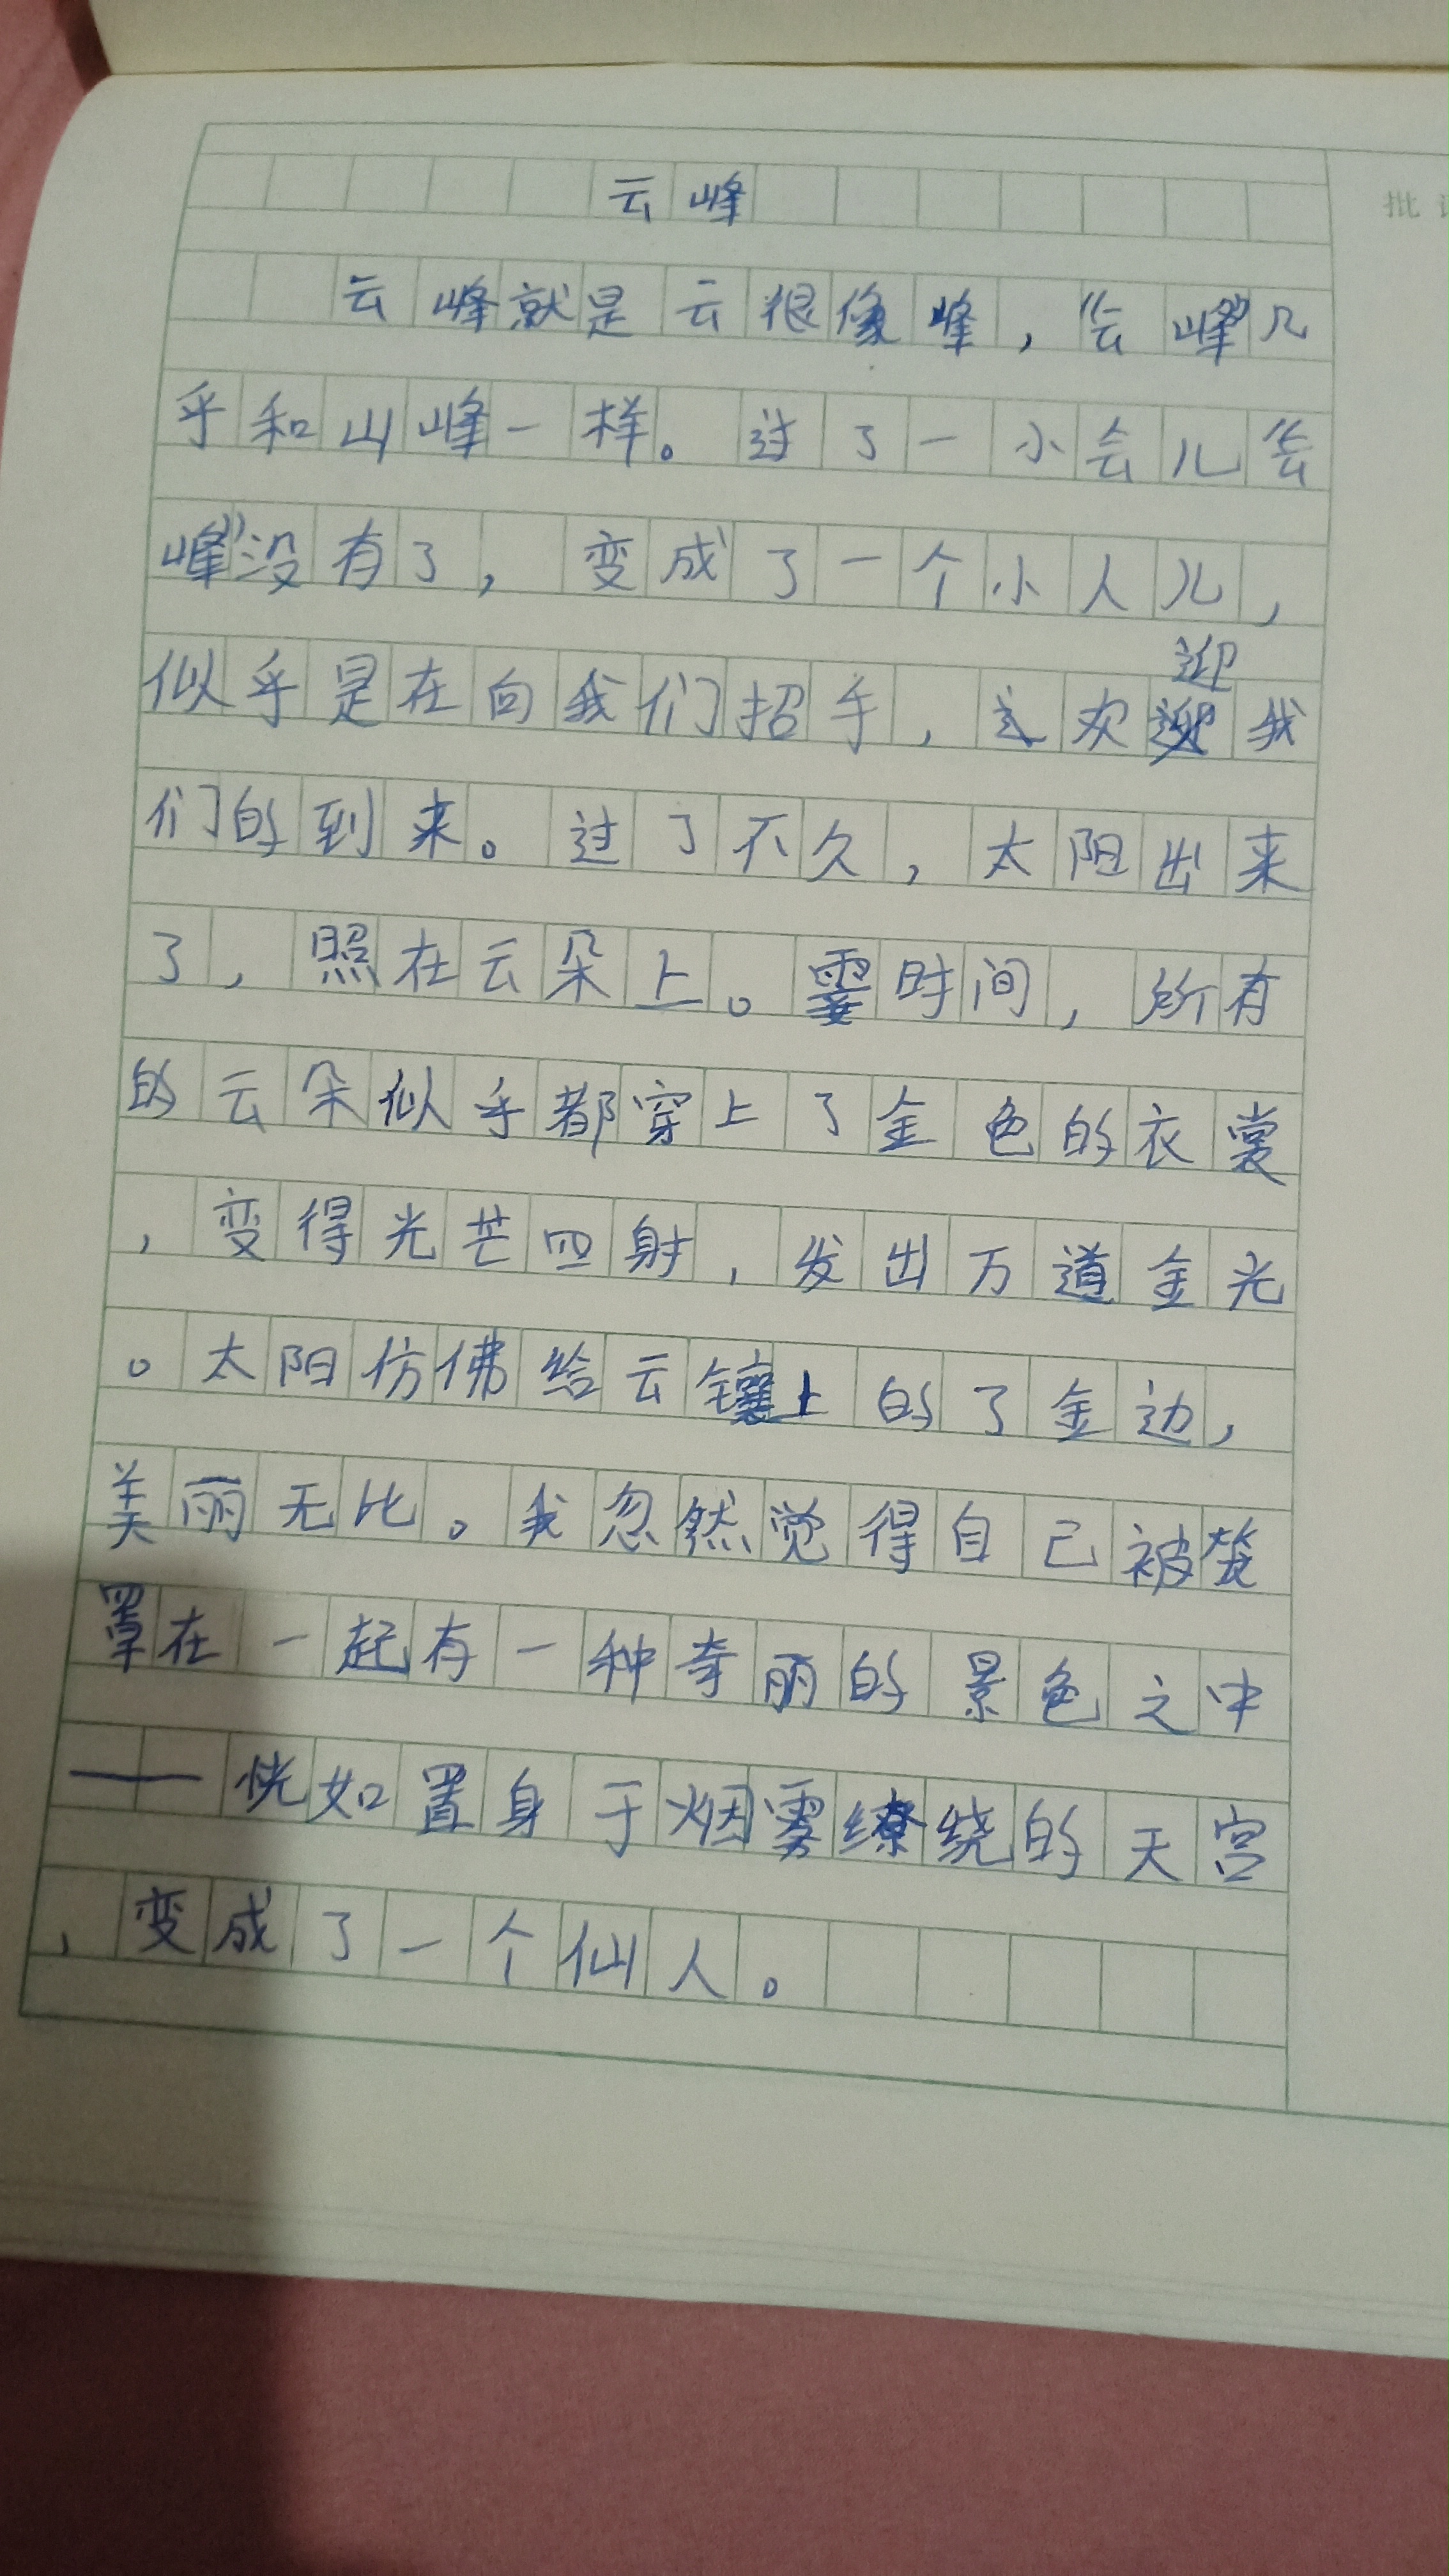 云峰
批
云峰就是云很像峰，“云峰”几
乎和山峰一样。过了一小会儿“云
峰”没有了，变成了一个小人儿，
似乎是在向我们招手，欢迎我
们的到来。过了不久，太阳出来
了，照在云朵上。霎时间，所有
的云朵似乎都穿上了金色的衣裳
，变得光芒四射，发出万道金光
。太阳仿佛给云镶上的了金边，
美丽无比。我忽然觉得自己被笼
罩在一起有一种奇丽的景色之中
——恍如置身于烟雾缭绕的天宫
，变成了一个仙人。